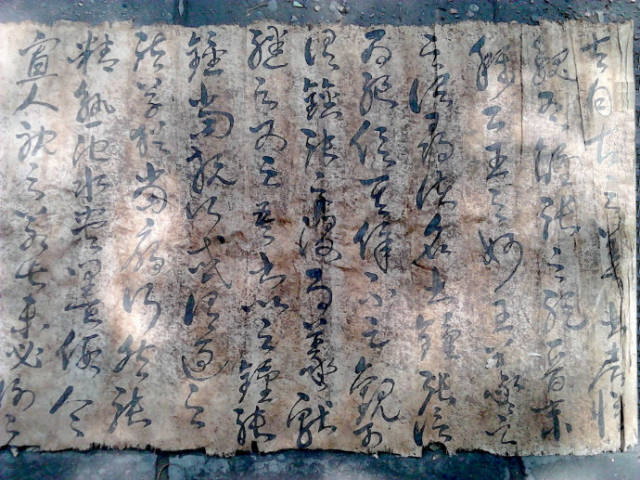 夫自古之善書者漢
魏有鍾張之絕晉末
稱二王之妙王羲之
云頃尋諸名書鍾張信
為絕倫其餘不足觀可
謂鍾張云沒而羲獻
繼之又云吾書比之鍾張
鍾當抗行或謂過之
張草猶當雁行然張
精熟池水盡墨假令
寡人耽之若此未必謝之